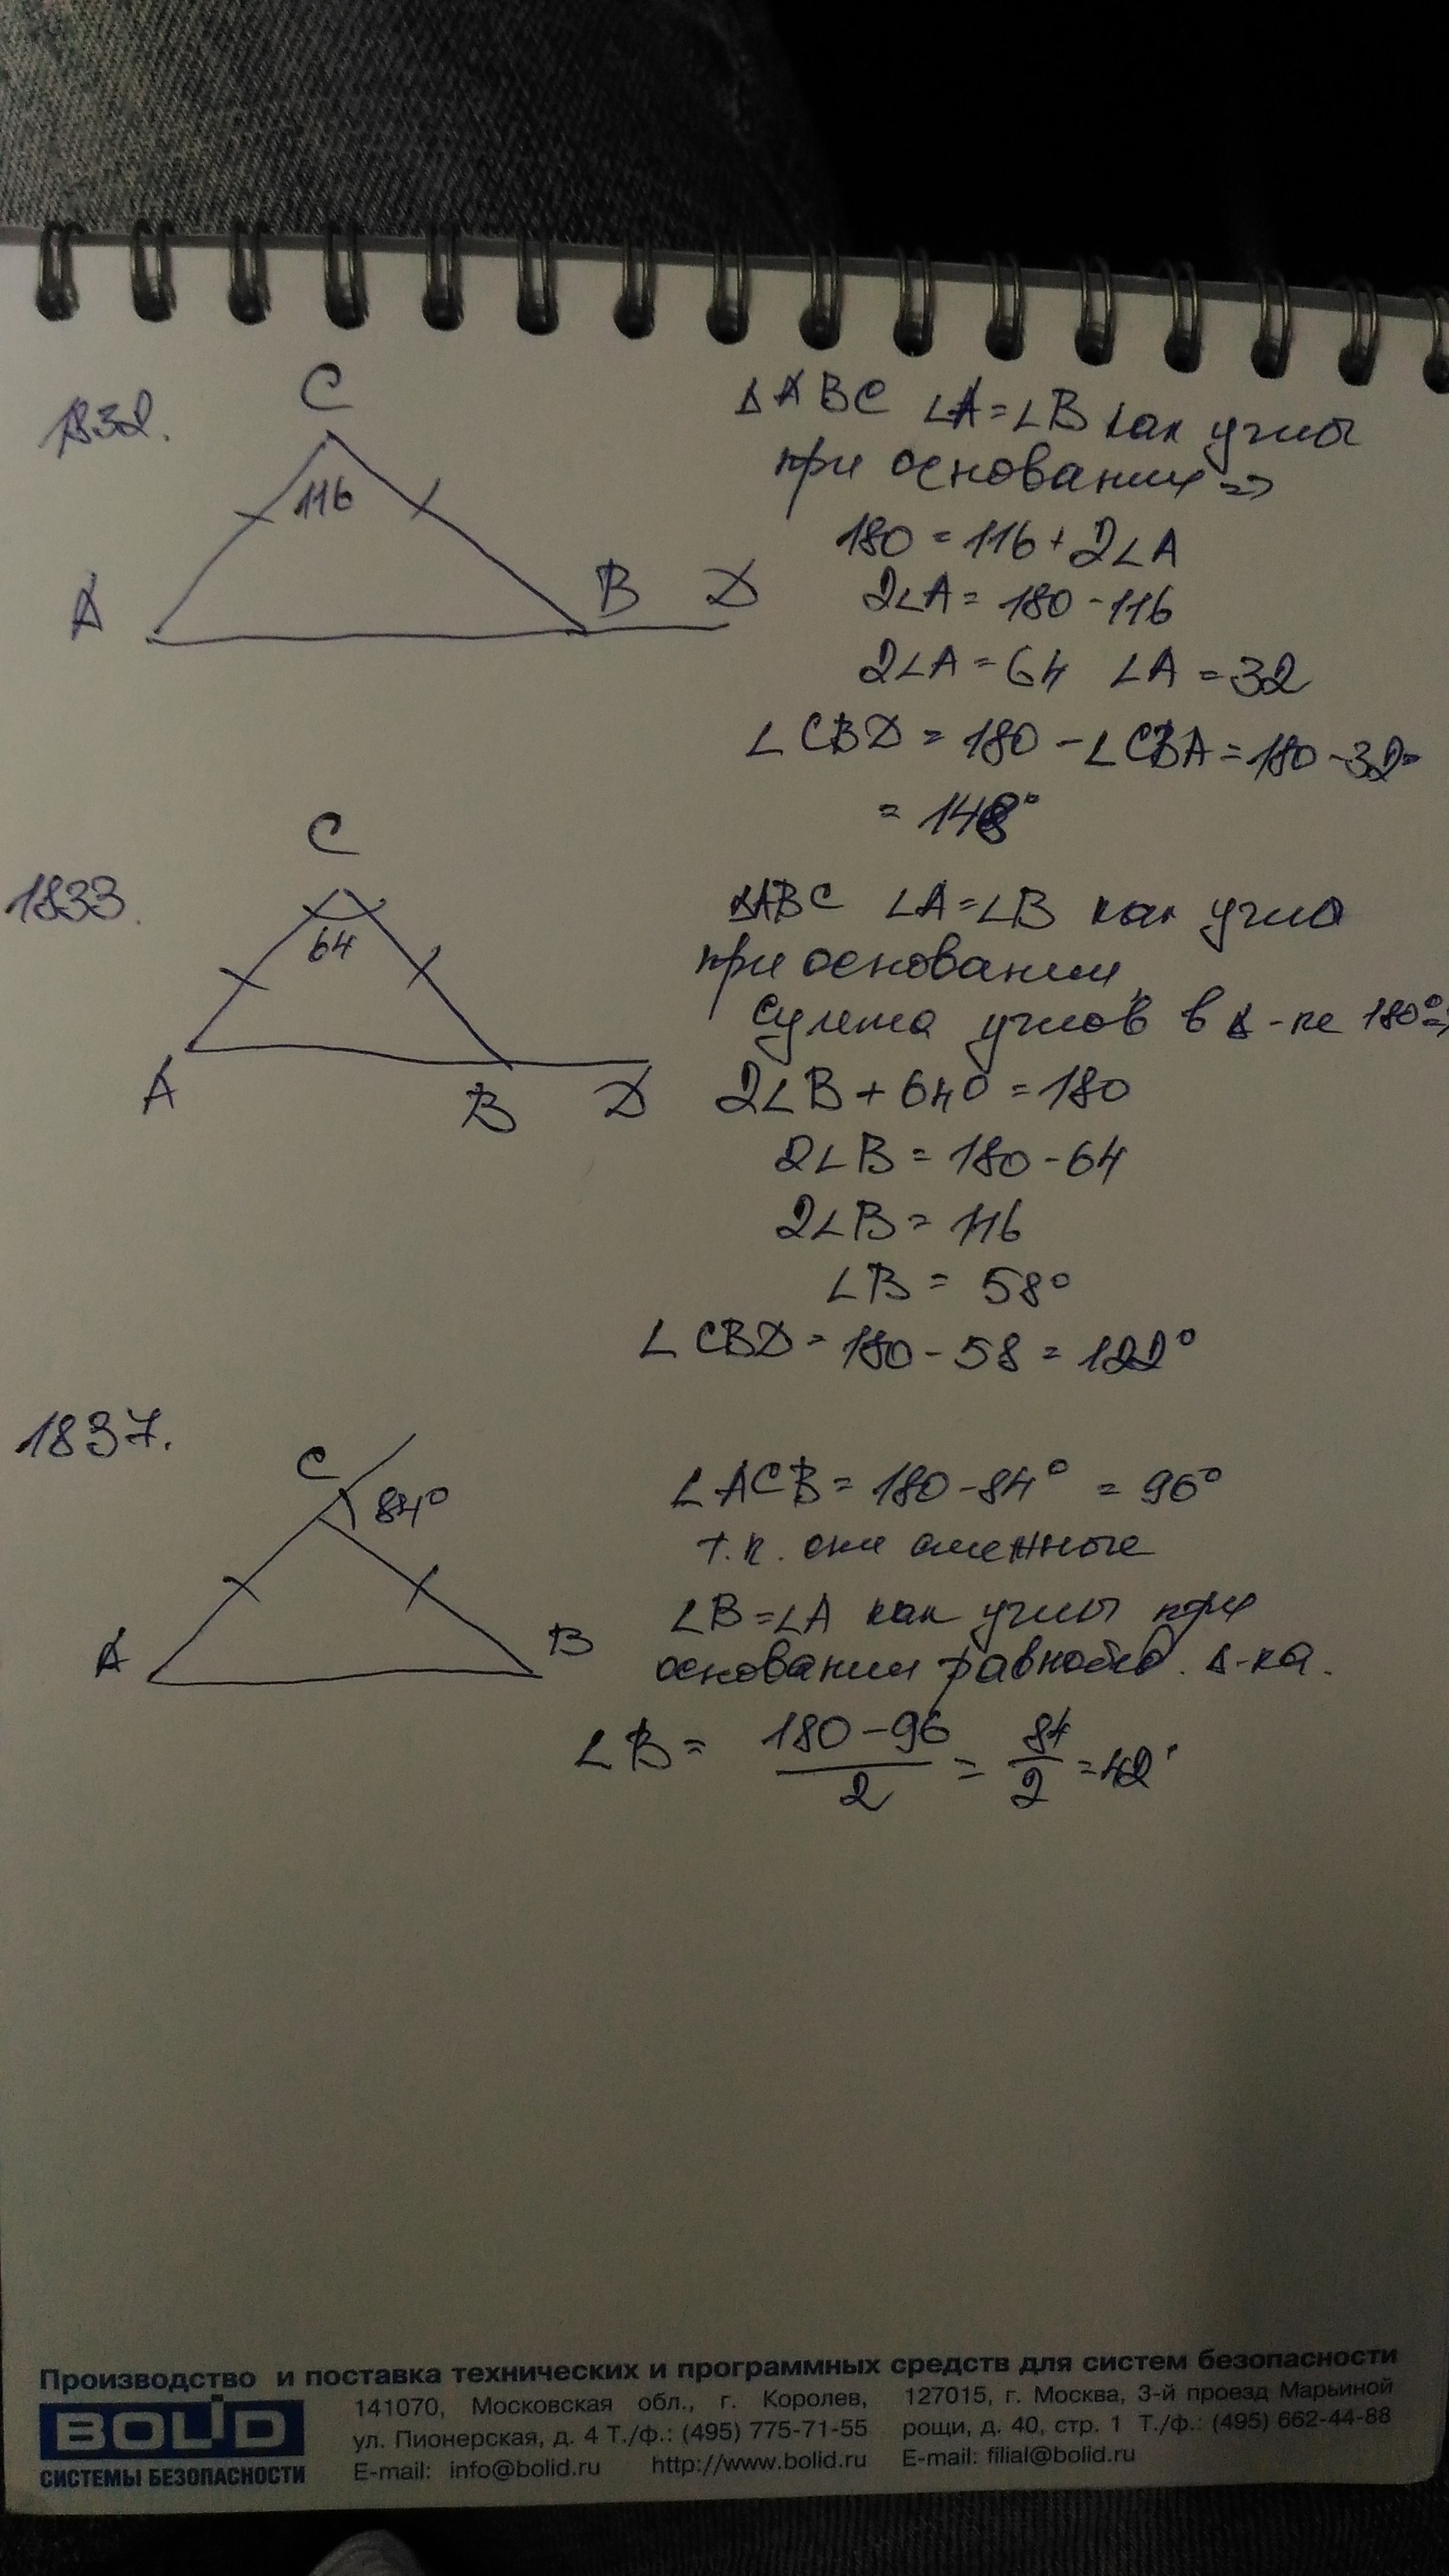 1832.
C
116
A
B
D
ΔABC ∠A=∠B как углы
при основании =>
180 = 116 + 2∠A
2∠A = 180 - 116
2∠A = 64 ∠A = 32
∠CBD = 180 - ∠CBA = 180 - 32 =
= 148°
1833.
C
64
A
B
D
ΔABC ∠A=∠B как углы
при основании,
сумма углов в Δ-ке 180° =>
2∠B + 64° = 180
2∠B = 180 - 64
2∠B = 116
∠B = 58°
∠CBD = 180 - 58 = 122°
1837.
C
84°
A
B
∠ACB = 180 - 84° = 96°
т.к. они смежные
∠B = ∠A как углы при
основании равнобед. Δ-ка.
∠B = (180 - 96)/2 = 84/2 = 42°
Производство и поставка технических и программных средств для систем безопасности
BOLID
СИСТЕМЫ БЕЗОПАСНОСТИ
141070, Московская обл., г. Королев,
ул. Пионерская, д. 4 Т./ф.: (495) 775-71-55
E-mail: info@bolid.ru http://www.bolid.ru
127015, г. Москва, 3-й проезд Марьиной
рощи, д. 40, стр. 1 Т./ф.: (495) 662-44-88
E-mail: filial@bolid.ru